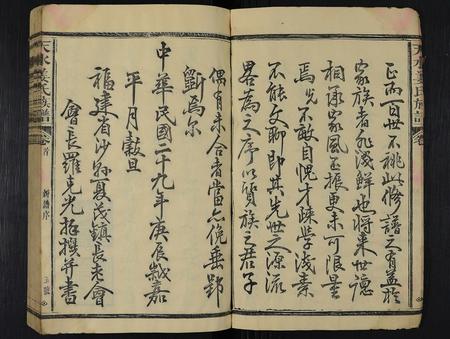 天水姜氏族譜
卷
正而百世不祧此修譜之有益於
家族者非淺鮮也將来世德
相承家風丕振更未可限量
焉光不敢自愧才疎學淺業
不能文聊即其先世之源流
畧為之序以質族之君子
偶有未合者當亦俛垂
劉焉尔
中華民國二十九年庚辰歲嘉
平月穀旦
福建省沙縣夏茂鎮長老會
會長羅克光拜撰并書
天水姜氏族譜
卷首
新譜序